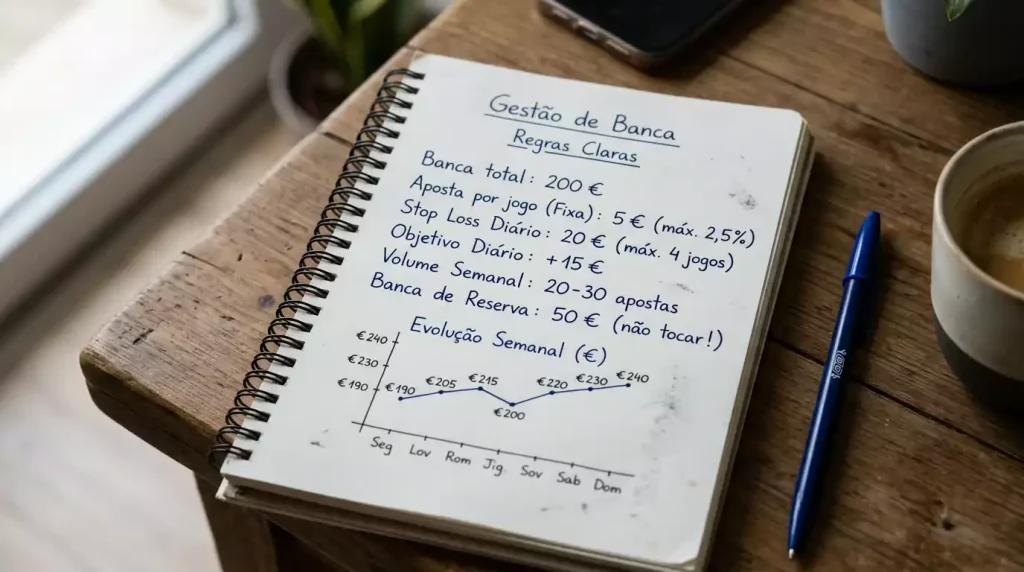 Gestão de Banca
Regras Claras
Banca total: 200 €
Aposta por jogo (Fixa): 5 € (máx. 2,5%)
Stop Loss Diário: 20 € (máx. 4 jogos)
Objetivo Diário: +15 €
Volume Semanal: 20-30 apostas
Banca de Reserva: 50 € (não tocar!)
Evolução Semanal (€)
€240
€230
€190
€190 €205 €215 €200 €220 €230 €240
Seg Lov Rom Jig. Sov Sab Dom